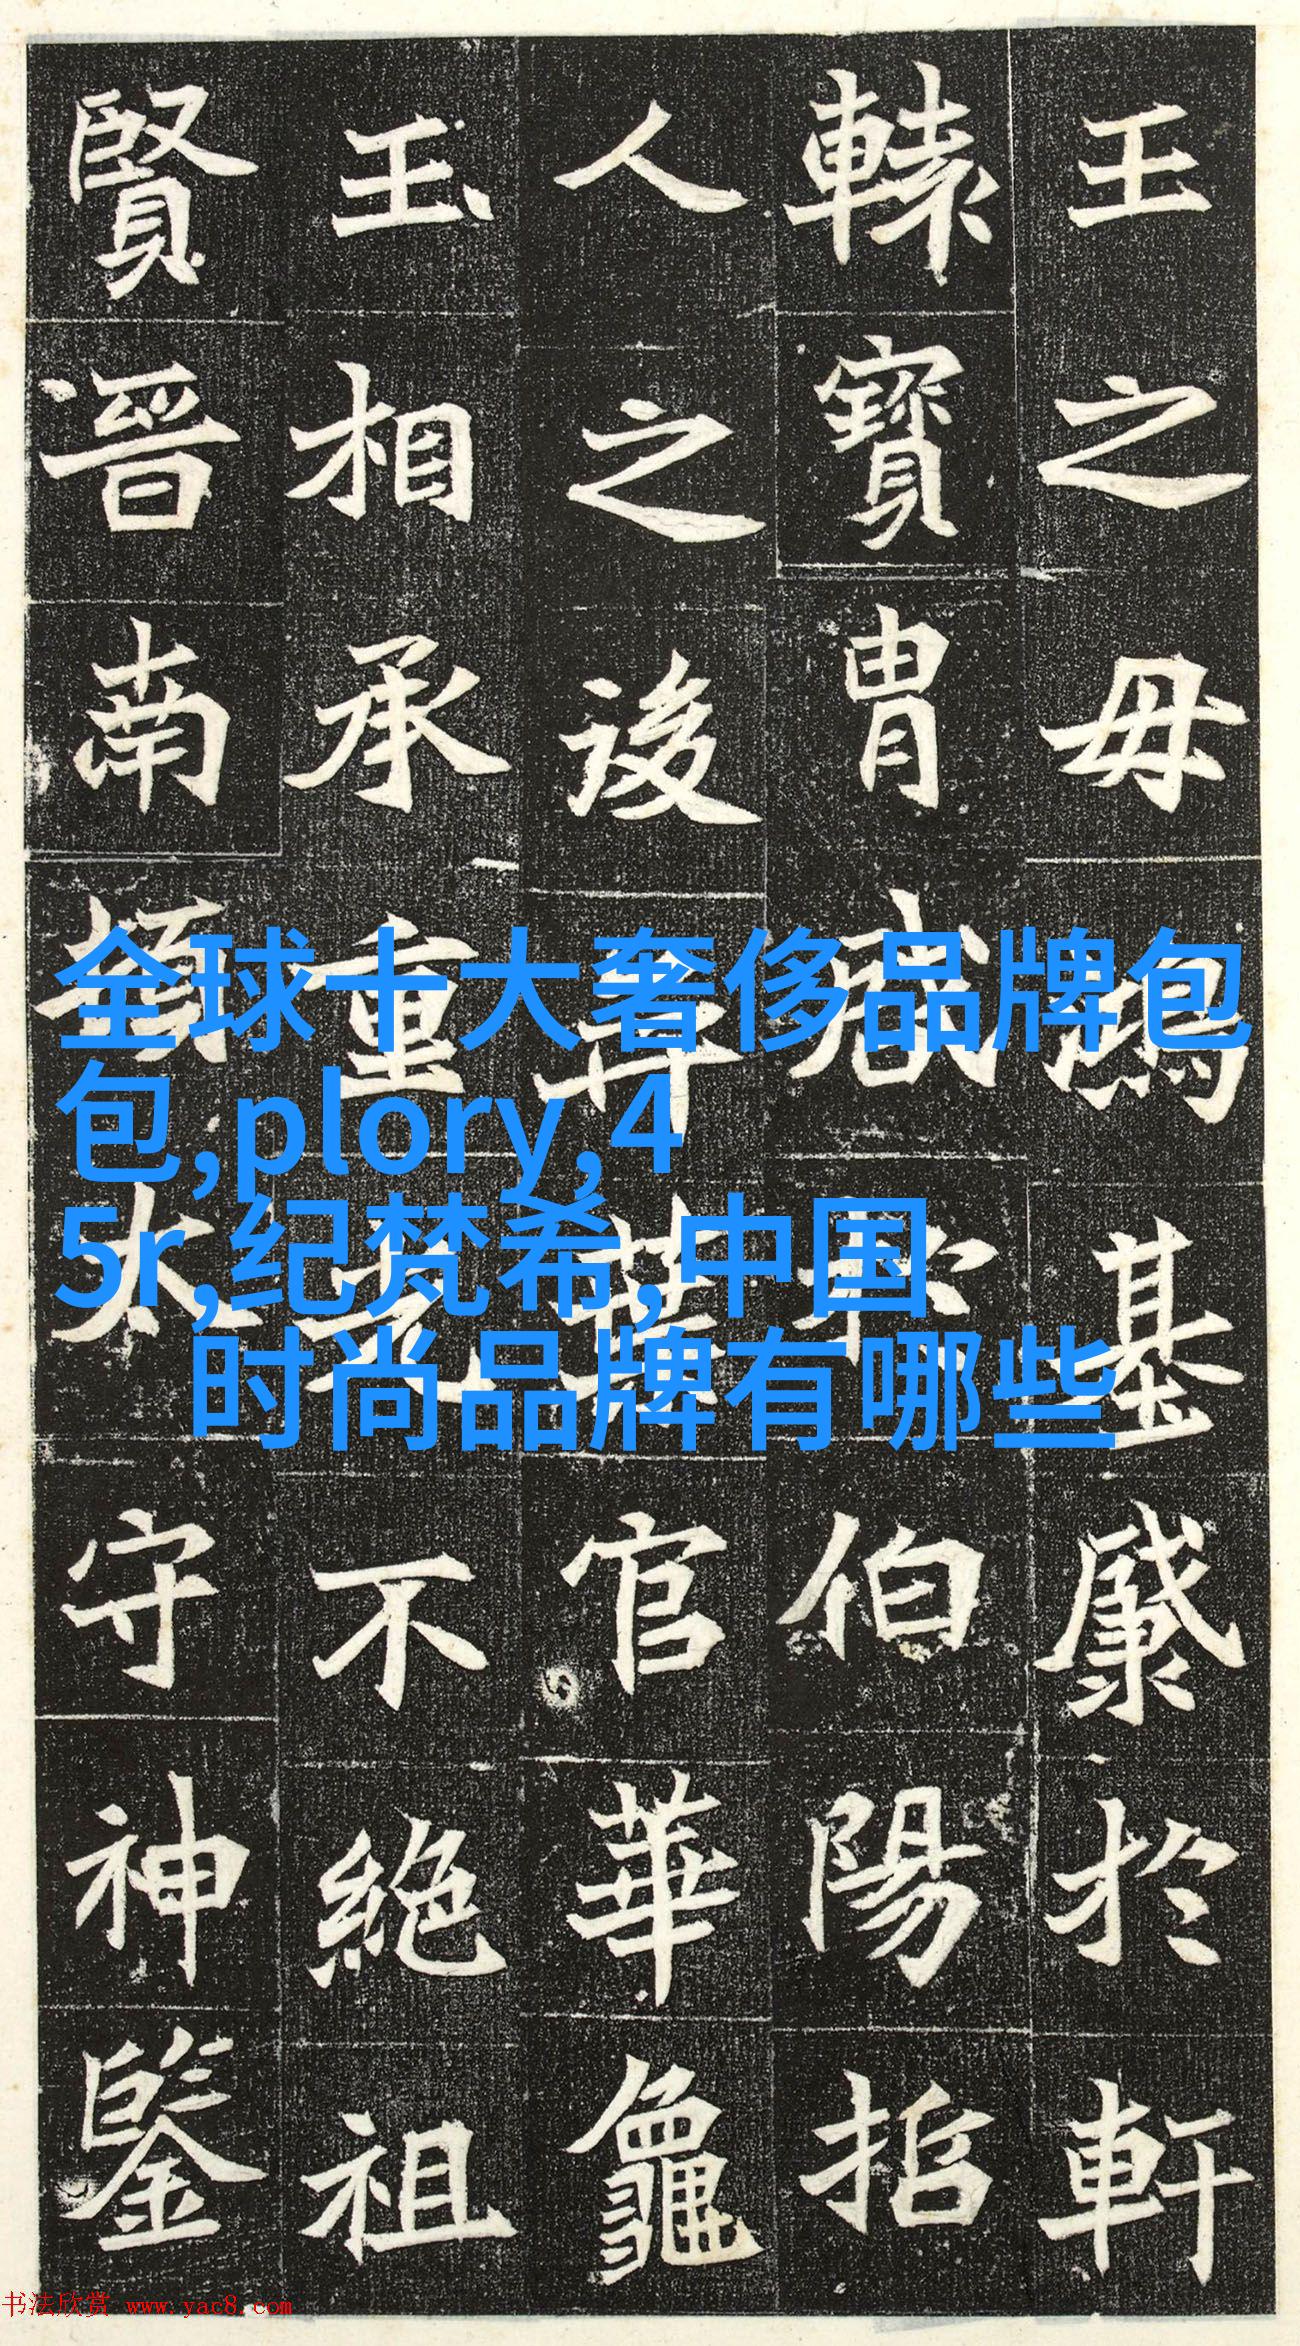 王之毋鴻基於軒
轅寶胄伯陽招
人之後官華龜
玉相承重光不絶祖
賢晉南頓太守神鑒
全球十大奢侈品牌包
包,plory,4
5r,纪梵希,中国
时尚品牌有哪些
书法欣赏 www.yac8.com